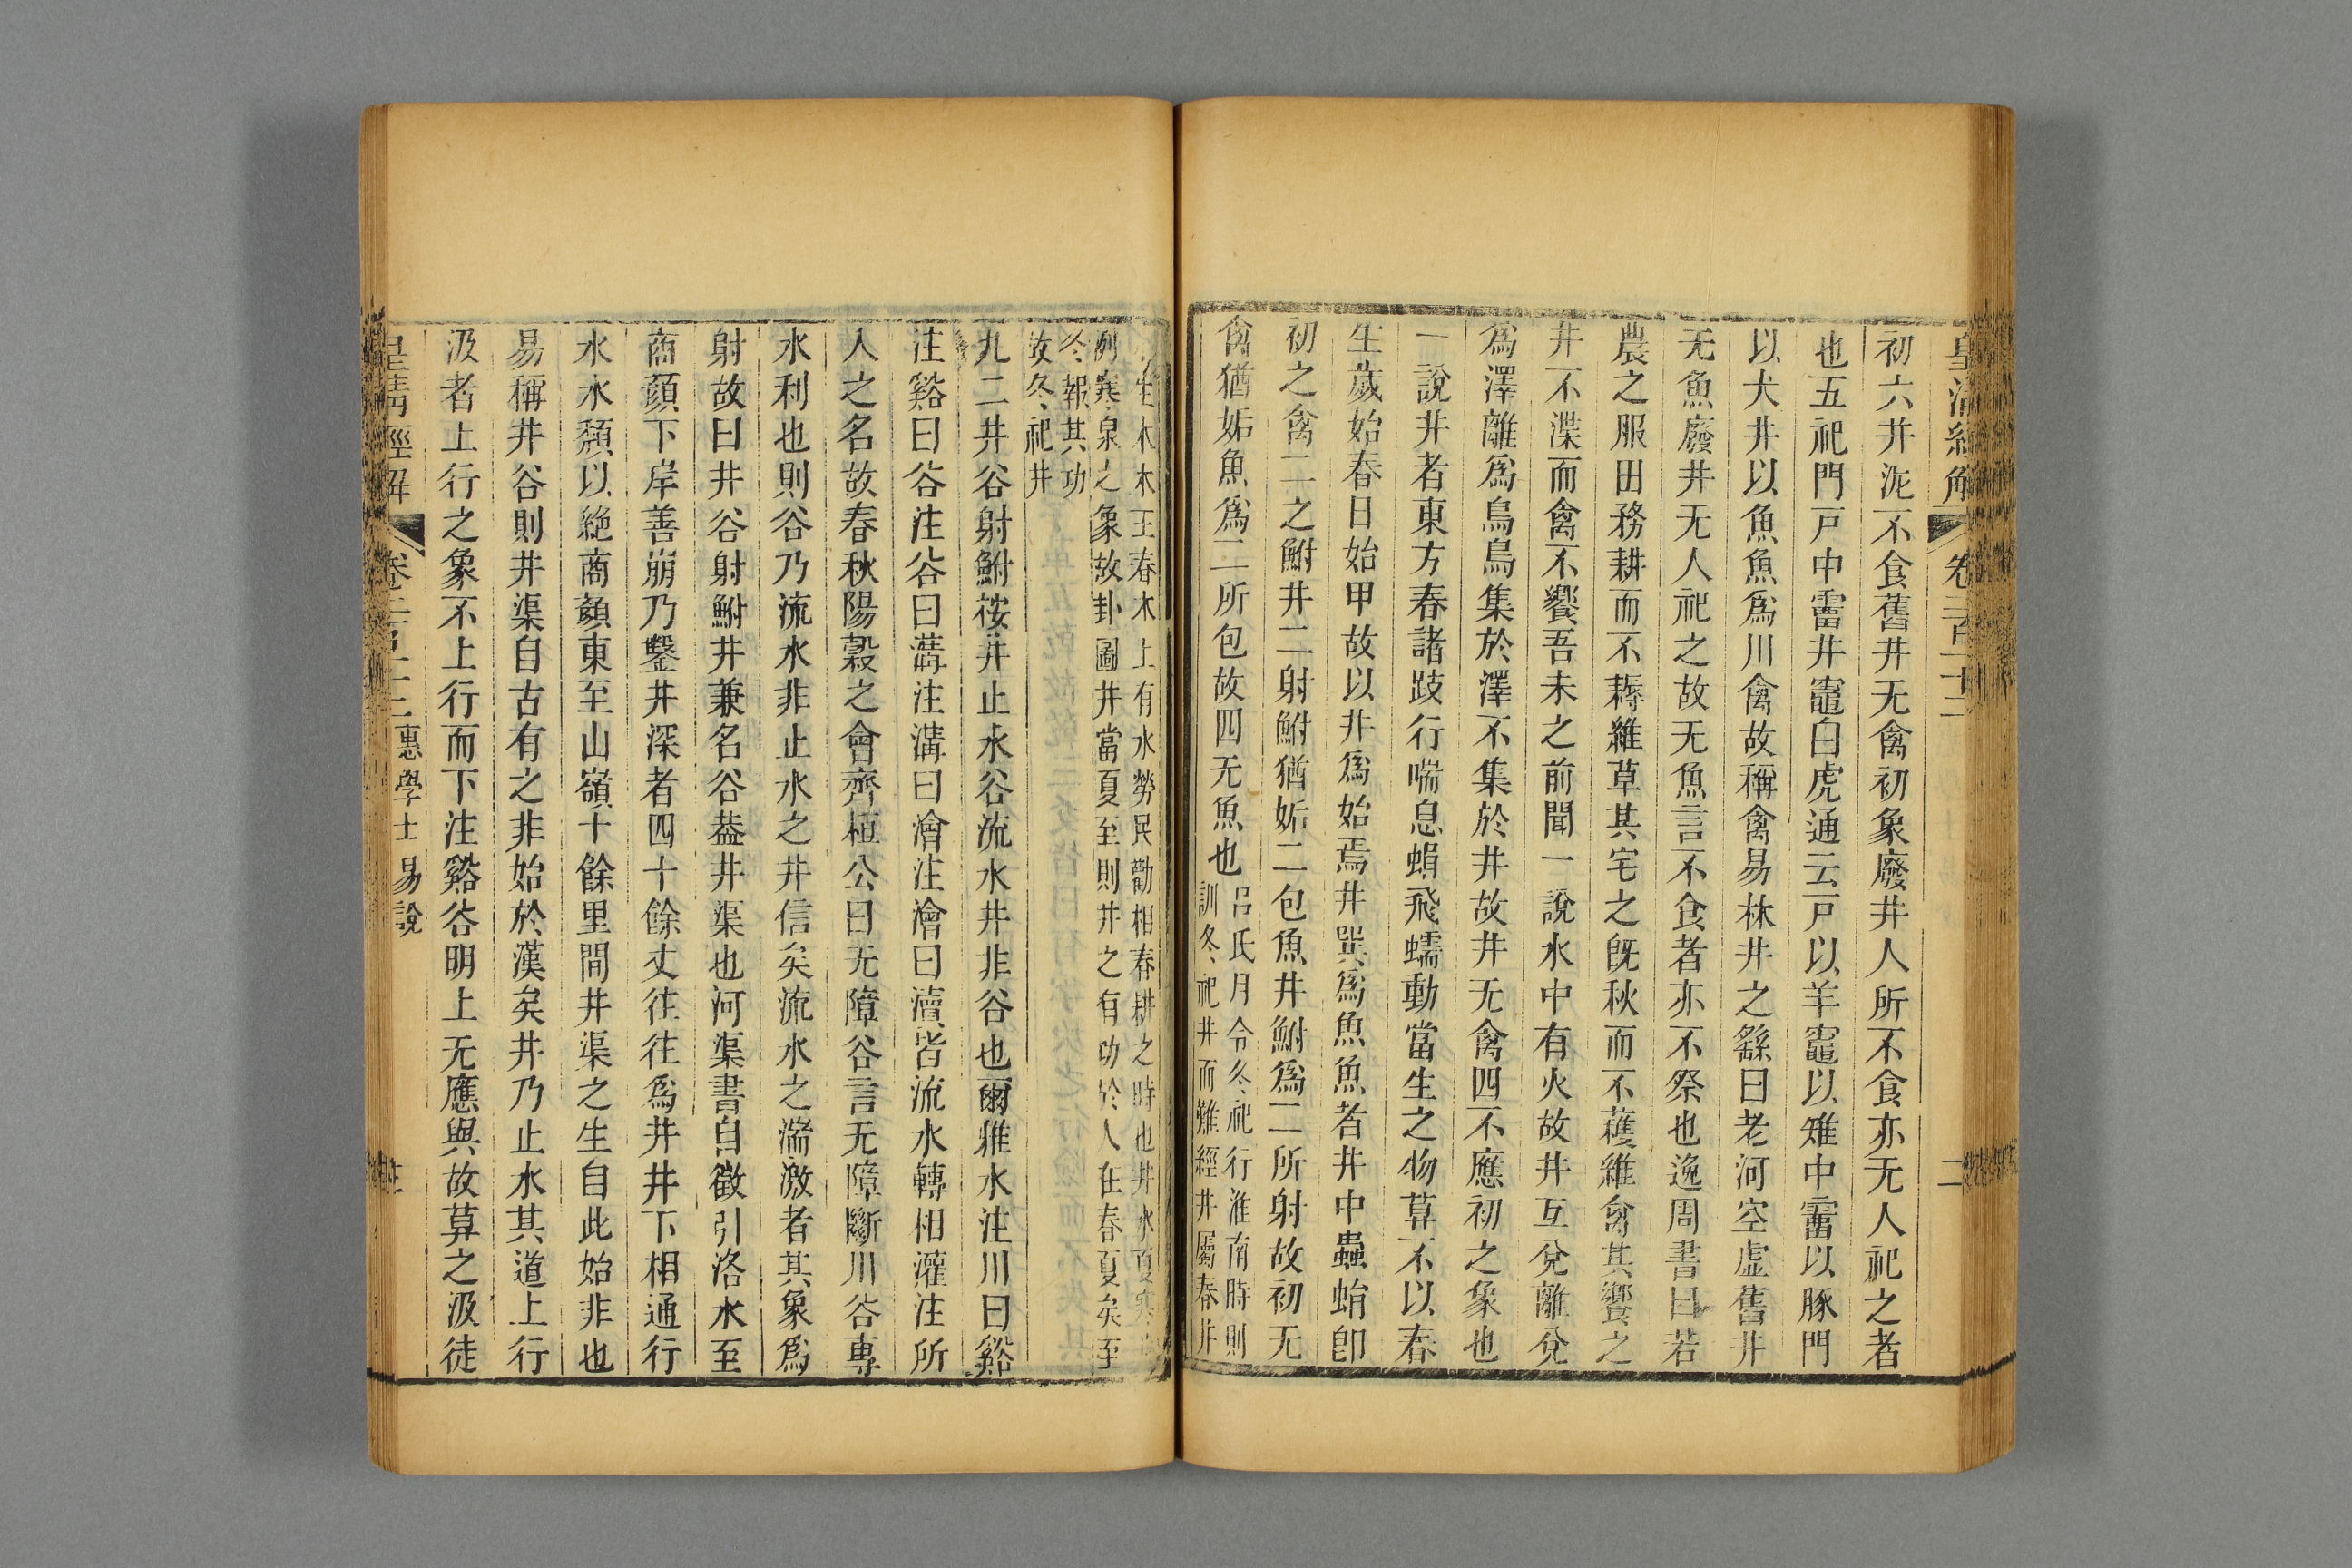 皇清經解 卷二百十二 二
初六井泥不食舊井无禽初象廢井人所不食亦无人祀之者
也五祀門戸中霤井竈白虎通云戸以羊竈以雉中霤以豚門
以犬井以魚魚爲川禽故稱禽易林井之繇曰老河空虛舊井
无魚廢井无人祀之故无魚言不食者亦不祭也逸周書曰若
農之服田務耕而不耨維草其宅之旣秋而不蓷維禽其饗之
井不渫而禽不饗吾未之前聞一說水中有火故井互兌離兌
爲澤離爲鳥鳥集於澤不集於井故井无禽四不應初之象也
一說井者東方春諸跂行喘息蜎飛蠕動當生之物算不以春
生歲始春日始甲故以井爲始焉井巽爲魚魚者井中蟲蜎卽
初之禽二之鮒井二射鮒猶姤二包魚井鮒爲二所射故初无
禽猶姤魚爲二所包故四无魚也
呂氏月令冬祀行淮南時則
訓冬祀井而難經井屬春井
生木木王春木上有水勞民勸相春耕之時也井水夏寒
洌寒泉之象故卦圖井當夏至則井之有功於人在春夏矣至
冬報其功
故冬祀井
九二井谷射鮒按井止水谷流水井非谷也爾雅水注川曰谿
注谿曰谷注谷曰溝注溝曰澮注澮曰瀆皆流水轉相灌注所
入之名故春秋陽穀之會齊桓公曰无障谷言无障斷川谷專
水利也則谷乃流水非止水之井信矣流水之湍激者其象爲
射故曰井谷射鮒井兼名谷葢井渠也河渠書自徵引洛水至
商顏下岸善崩乃鑿井深者四十餘丈往往爲井井下相通行
水水頹以絶商顏東至山嶺十餘里間井渠之生自此始非也
易稱井谷則井渠自古有之非始於漢矣井乃止水其道上行
汲者上行之象不上行而下注谿谷明上无應與故算之汲徒
皇清經解 卷二百十二 惠學士易說